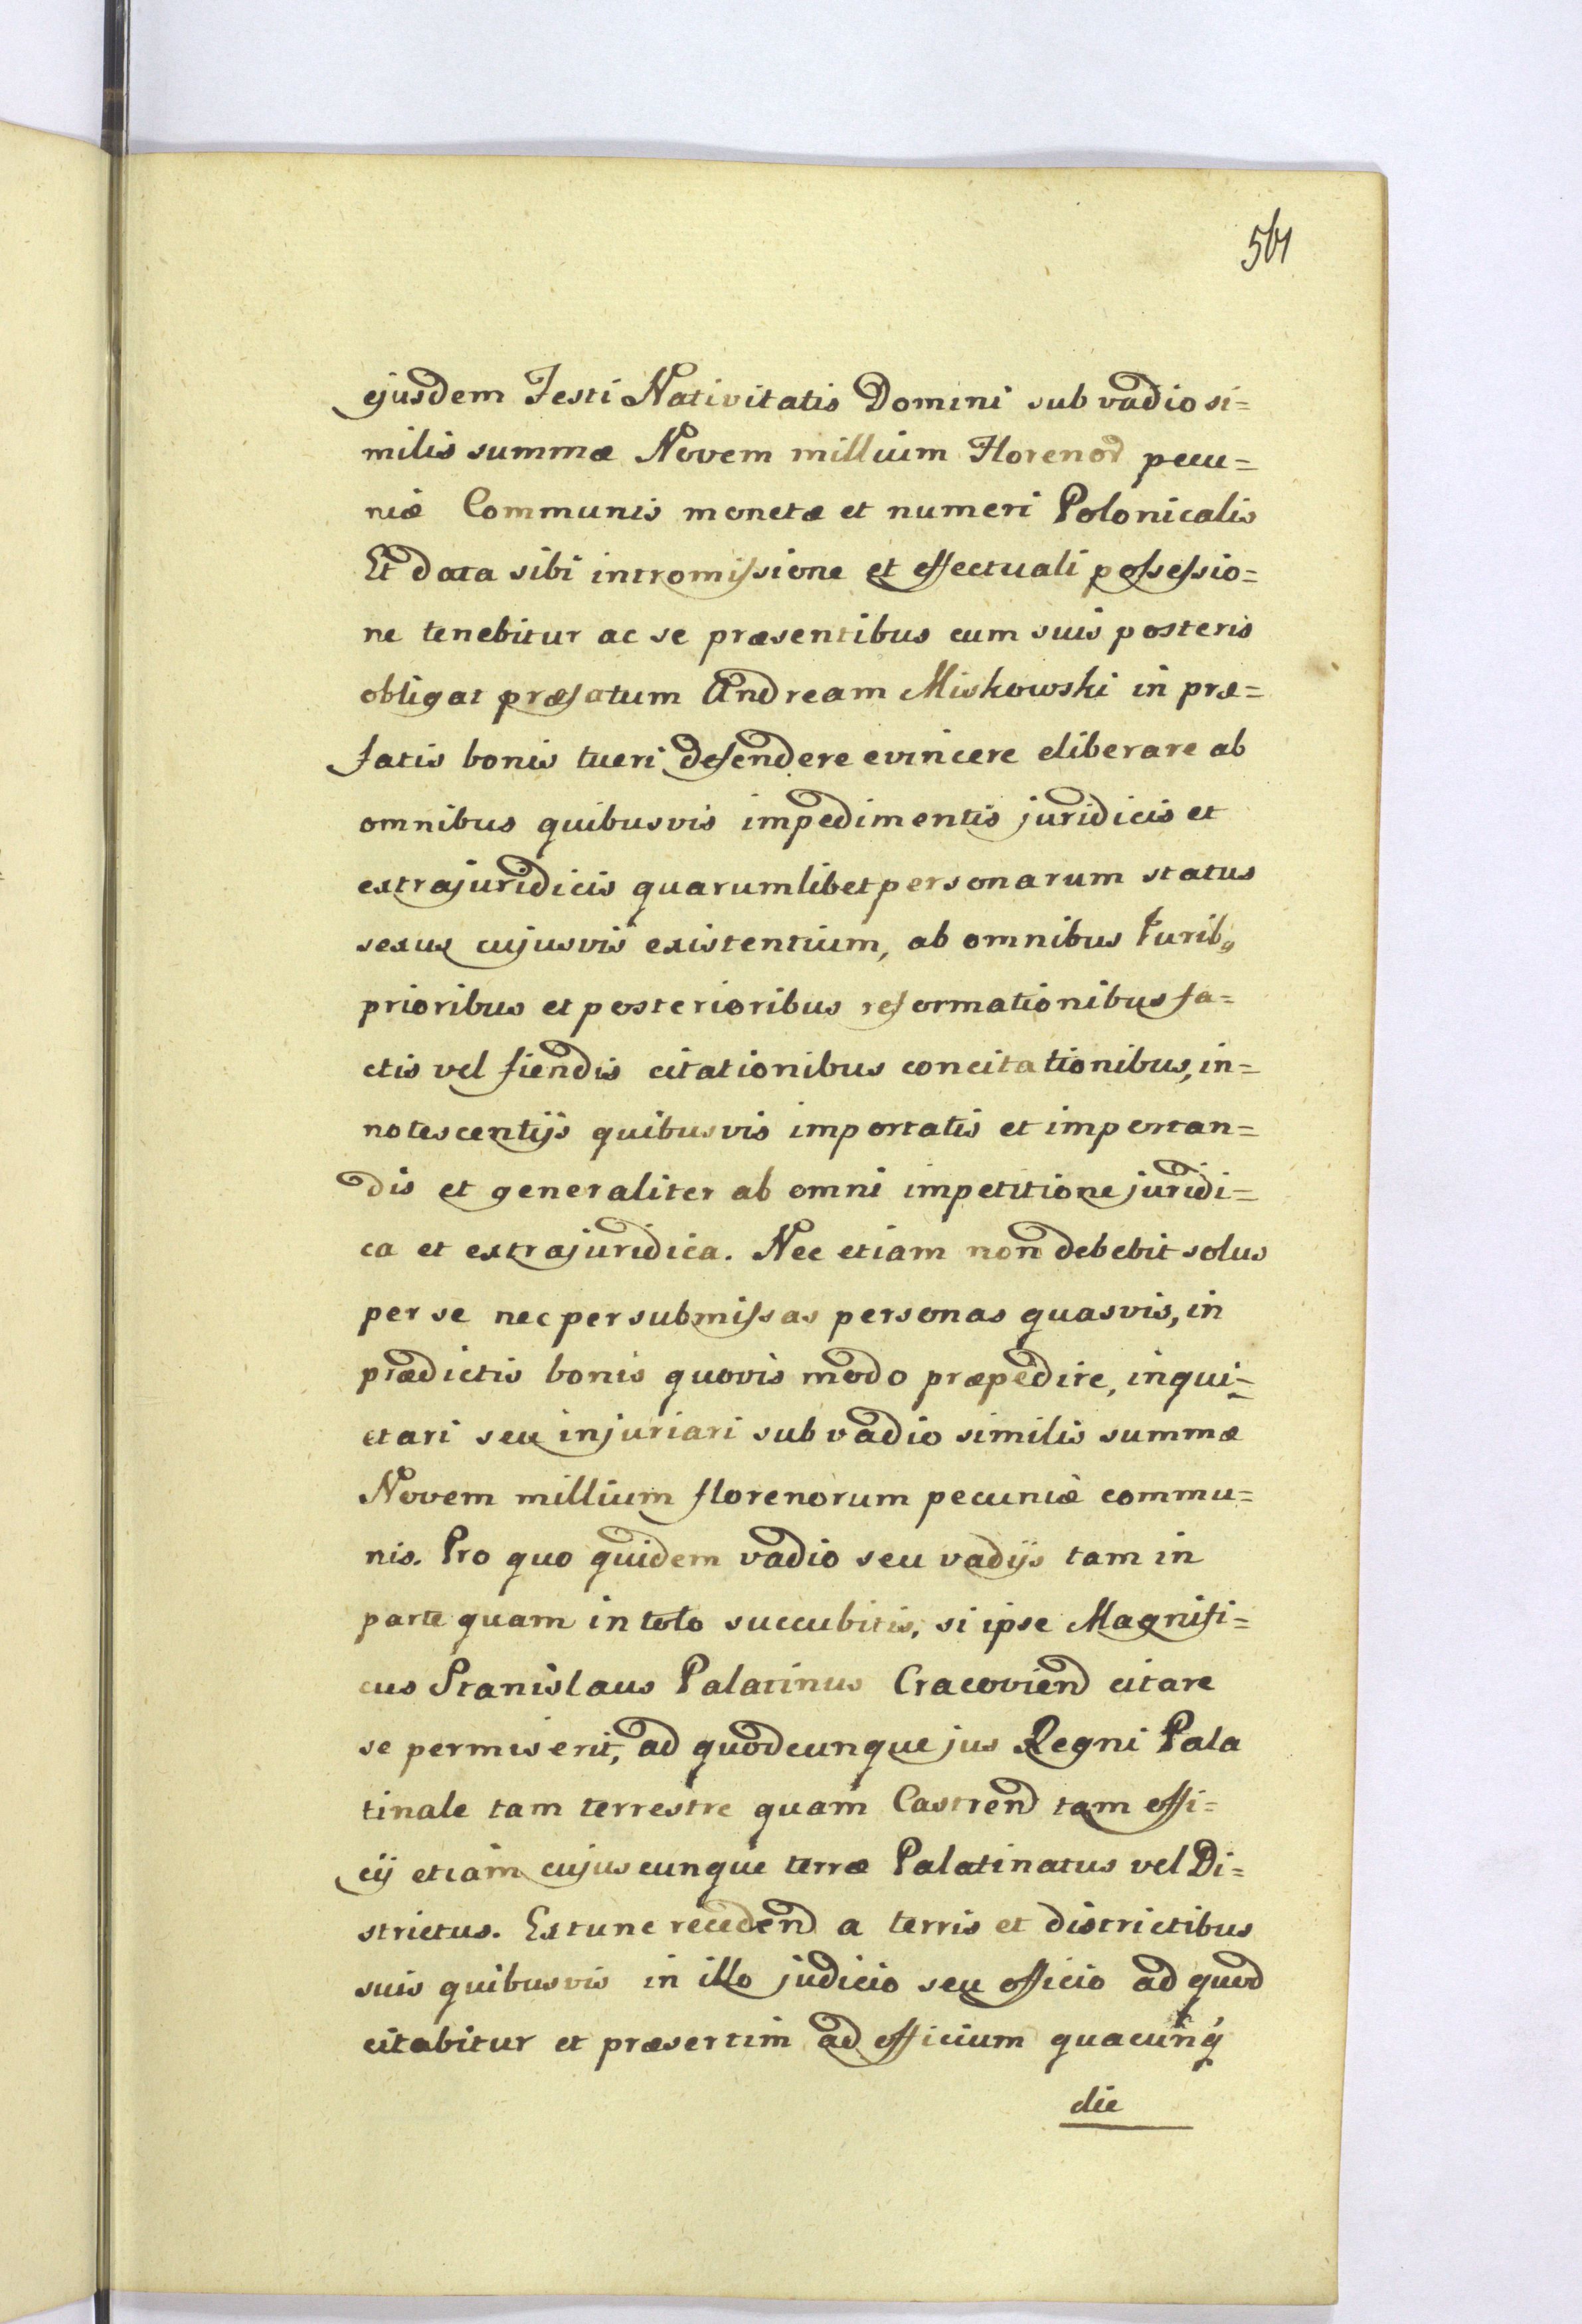 561
ejusdem Festi Nativitatis Domini sub vadio si=
milis summæ Novem millium Florenor pecu=
niæ Communis monetæ et numeri Polonicalis
Et data sibi intromissione et effectuali possessio=
ne tenebitur ac se præsentibus cum suis posteris
obligat præfatum Andream Miskowski in præ=
fatis bonis tueri defendere evincere eliberare ab
omnibus quibusvis impedimentis juridicis et
extrajuridicis quarumlibet personarum status
sexus cujusvis existentium, ab omnibus Iurib9
prioribus et posterioribus reformationibus fa=
ctis vel fiendis citationibus concitationibus, in=
notescentijs quibusvis importatis et importan=
dis et generaliter ab omni impetitione juridi=
ca et extrajuridica. Nec etiam non debebit solus
per se nec per submissas personas quasvis, in
prædictis bonis quovis modo præpedire, inqui=
etari seu injuriari sub vadio similis summæ
Novem millium florenorum pecuniæ commu=
nis. Pro quo quidem vadio seu vadijs tam in
parte quam in toto succubitis, si ipse Magnifi=
cus Stanislaus Palatinus Cracoviend citare
se permiserit, ad quodcunque jus Regni Pala
tinale tam terrestre quam Castrend tam offi=
cij etiam cujuscunque terræ Palatinatus vel Di=
strictus. Extunc recedend a terris et districtibus
suis quibusvis in illo judicio seu officio ad quod
citabitur et præsertim ad officium quacunq
die